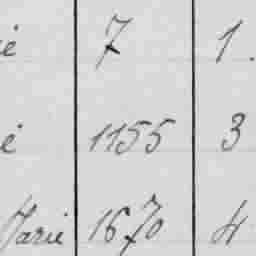 é 7 1.
é 1155 3
Marie 1670 4